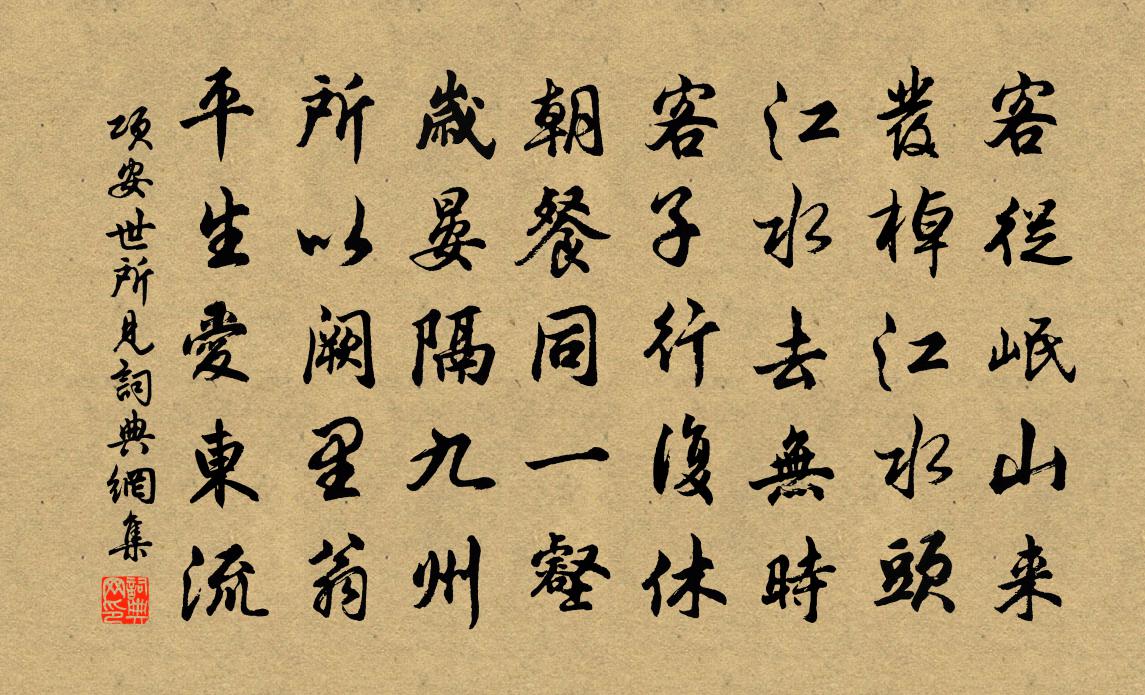 客從岷山来
發棹江水頭
江水去無時
客子行復休
朝餐同一壑
歲晏隔九州
所以闕里翁
平生愛東流
項安世所見詞典網集
詞典網印